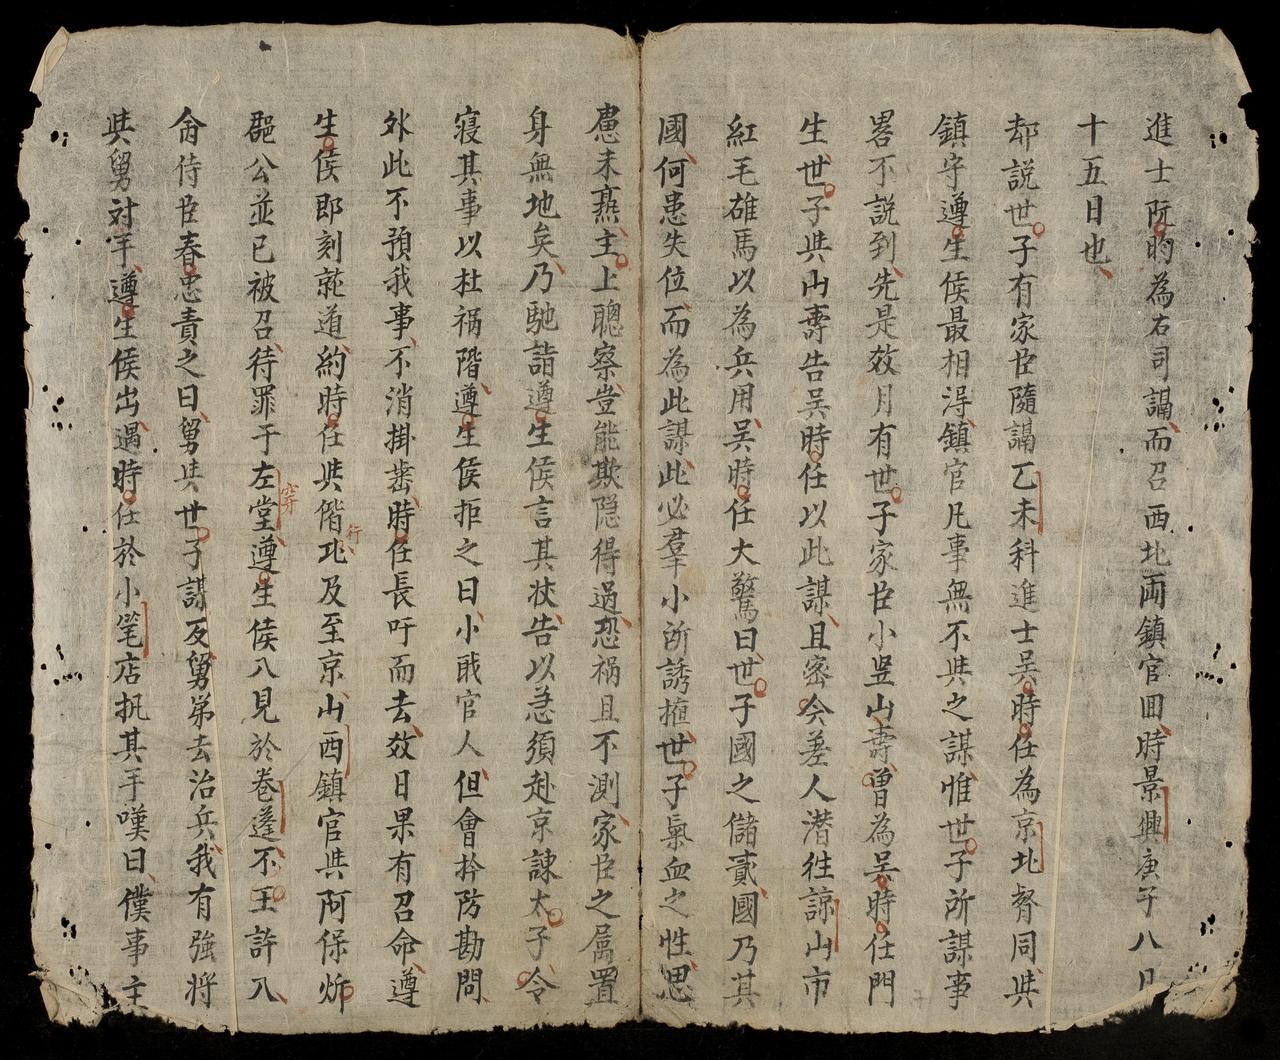 進士阮昀為右司講而召西北両鎮官囬時景興庚子八月
十五日也
却説世子有家臣隨講乙未科進士吳時任為京北督同與
鎮守遵生侯最相淂鎮官凡事無不與之謀惟世子所謀事
畧不說到先是效月有世子家臣小竪山壽曽為吳時任門
生世子與山壽告吳時任以此謀且密令差人潜徃諒山市
紅毛雄馬以為兵用吳時任大驚曰世子國之儲貳國乃其
國何患失位而為此謀此必羣小所誘擁世子氣血之性思
慮未熟主上聰察豈能欺隐得過恐禍且不測家臣之属置
身無地矣乃馳詣遵生侯言其狀告以急須赴京諫太子令
寝其事以杜禍階遵生侯拒之曰小戢官人但會拎防勘問
外此不預我事不消掛齒時任長吁而去效日果有召命遵
生侯即刻就道約時任與偕北行及至京山西鎮官與阿保炘
郡公並已被召待罪于左穿堂遵生侯入見於巻蓬不王許入
侖侍臣春忠責之曰舅與世子謀反舅弟去治兵我有強将
與舅対宇遵生侯出遇時任於小筆店扒其手嘆曰僕事主